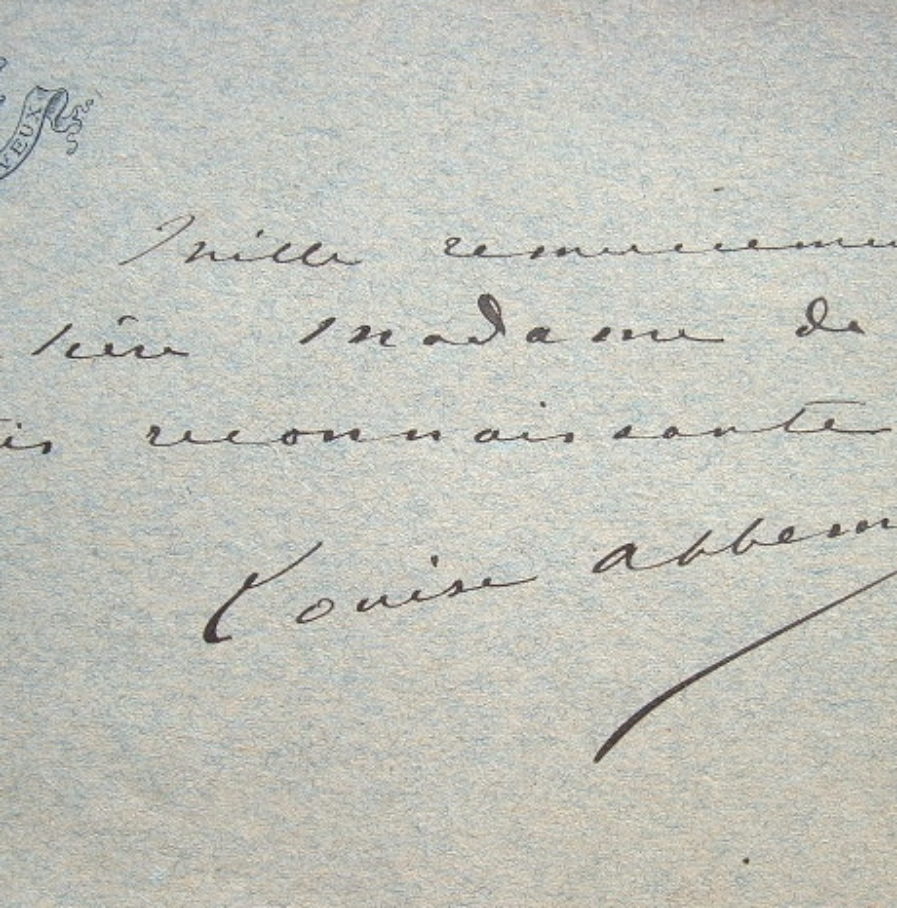 VEUX
Mille remerciemen
hère Madame de
tis reconnaissante
Louise Abbem